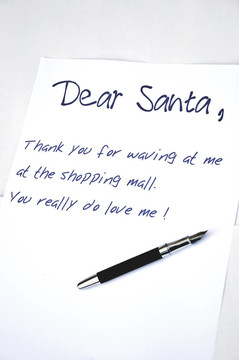 Dear Santa,
Thank you for waving at me
at the shopping mall.
You really do love me!